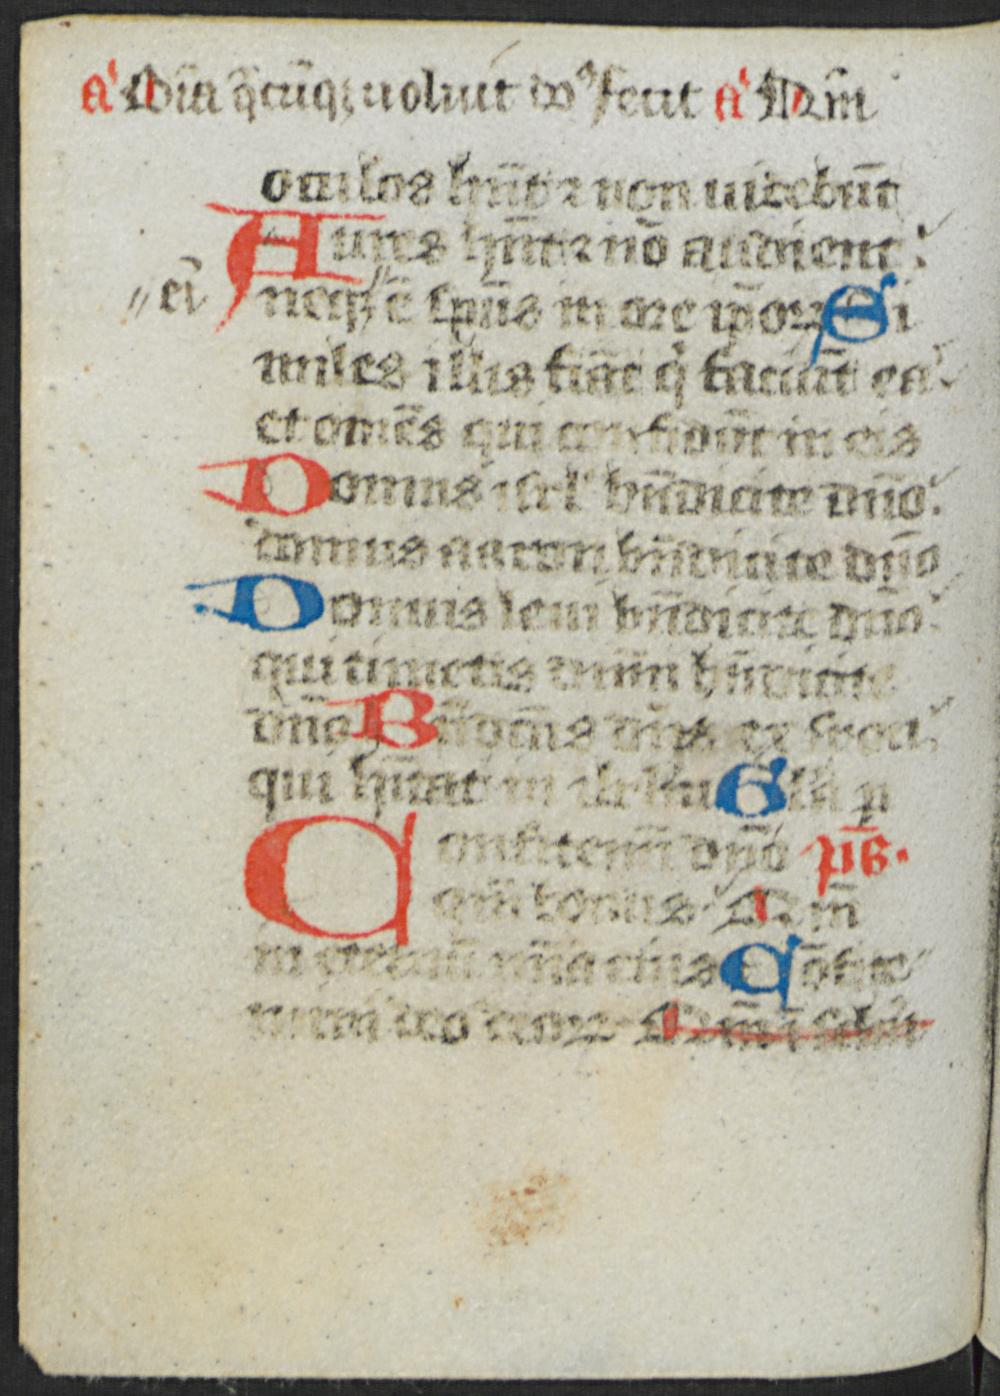 a᷎ Om̄ia q̄cūq; uoluit do᷒ fecit a᷎ Qm̄
oculos hn̄t ⁊ non uidebūt
Aures hn̄t ⁊ nō audient:
ei neq; ē sp̄us in ore ip̄oꝝ Si
miles illis fiāt q̄ faciūt ea.
et om̄es qui confidūt in eis
Domus isrl' bn̄dicite dn̄o:
domus aaron bn̄dicite dn̄o
Domus leui bn̄dicite dn̄o:
qui timetis dn̄m bn̄dicite
dn̄o Bn̄dc̄us dn̄s ex syon.
qui hītat in ihrl'm Gl'a p
Confitemī dn̄o ps̄.
qm̄ bonus Qm̄
in eternū mīa eius Cōfite
mini deo deoꝝ Qm̄ ī